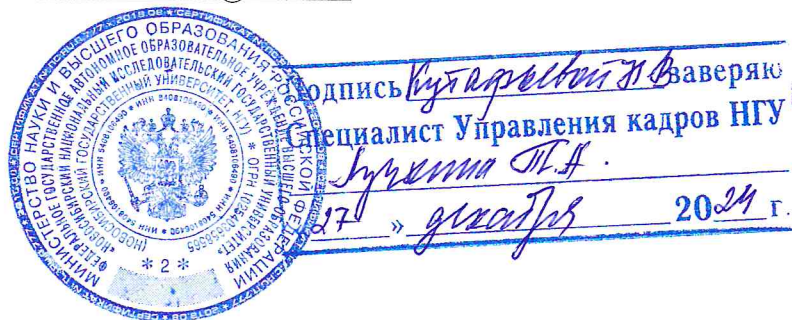 МИНИСТЕРСТВО НАУКИ И ВЫСШЕГО ОБРАЗОВАНИЯ РОССИЙСКОЙ ФЕДЕРАЦИИ
ФЕДЕРАЛЬНОЕ ГОСУДАРСТВЕННОЕ АВТОНОМНОЕ ОБРАЗОВАТЕЛЬНОЕ УЧРЕЖДЕНИЕ ВЫСШЕГО ОБРАЗОВАНИЯ
«НОВОСИБИРСКИЙ НАЦИОНАЛЬНЫЙ ИССЛЕДОВАТЕЛЬСКИЙ ГОСУДАРСТВЕННЫЙ УНИВЕРСИТЕТ»
(НОВОСИБИРСКИЙ ГОСУДАРСТВЕННЫЙ УНИВЕРСИТЕТ, НГУ) * ОГРН
* ИНН 5408106490 * ИНН 5408106490
* 2 *
Подпись Кутафьевой Н В заверяю
Специалист Управления кадров НГУ
Т.А.
27 » декабря 2024 г.